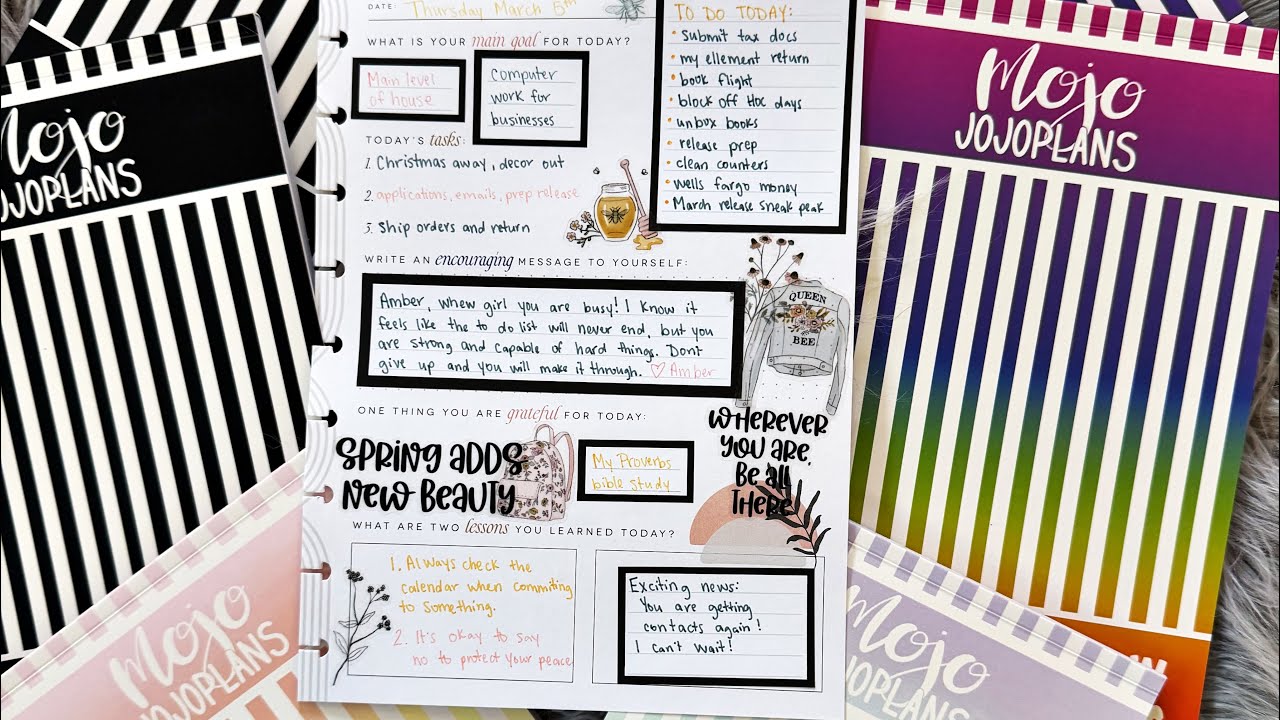 Mojo
JOJOPLANS
DATE: Thursday March 5th
WHAT IS YOUR main goal FOR TODAY?
Main level
of house
Computer
work for
businesses
TO DO TODAY:
• Submit tax docs
• my ellement return
• book flight
• block off HOC days
• unbox books
• release prep
• clean counters
• wells fargo money
• March release sneak peak
TODAY'S tasks:
1. Christmas away, decor out
2. applications, emails, prep release
3. Ship orders and return
WRITE AN encouraging MESSAGE TO YOURSELF:
Amber, whew girl you are busy! I know it
feels like the to do list will never end, but you
are strong and capable of hard things. Dont
give up and you will make it through. ♡ Amber
QUEEN
BEE
ONE THING YOU ARE grateful FOR TODAY:
SPRING ADDS
NEW BEAUTY
My Proverbs
bible study
WHEREVER
YOU ARE,
BE ALL
THERE
WHAT ARE TWO lessons YOU LEARNED TODAY?
1. Always check the
calendar when commiting
to something.
2. It's okay to say
no to protect your peace
Exciting news:
You are getting
contacts again!
I can't wait!
Mojo
JOJOPLANS
Mojo
JOJOPLANS
Mojo
JOJOPLANS